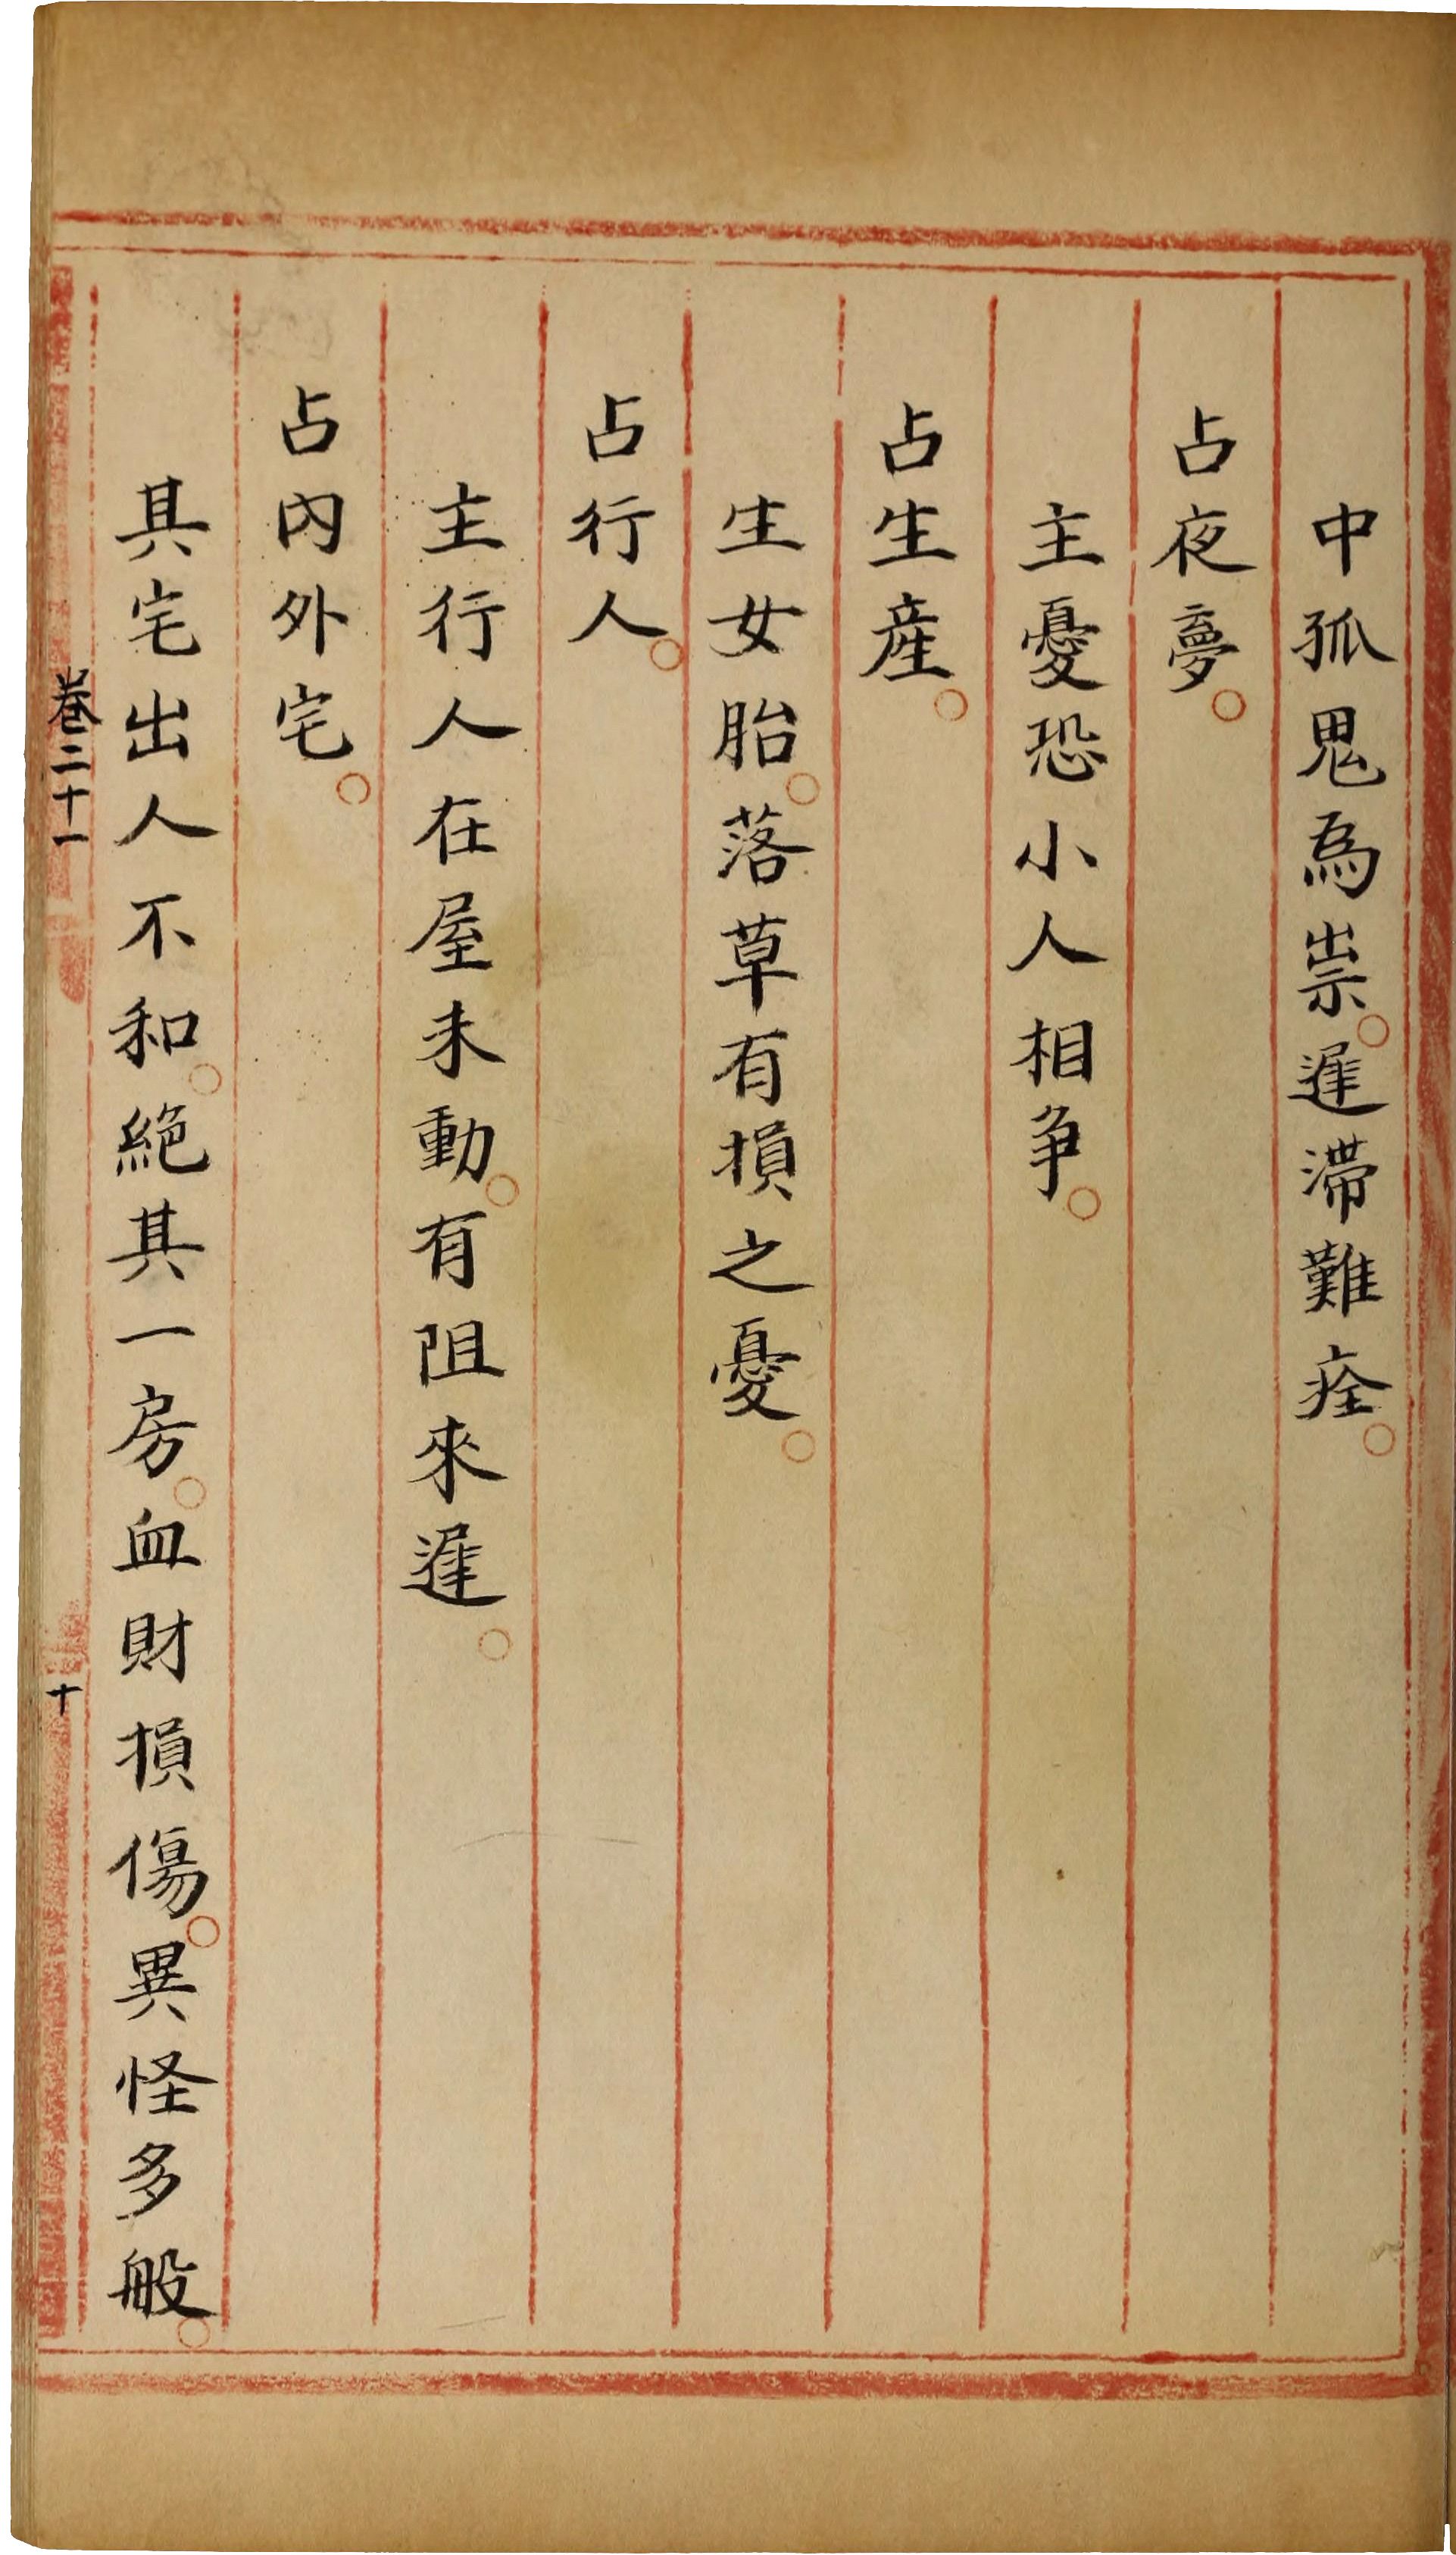 中孤鬼為祟遲滯難痊
占夜夢
主憂恐小人相爭
占生產
生女胎落草有損之憂
占行人
主行人在屋未動有阻來遲
占內外宅
其宅出人不和絕其一房血財損傷異怪多般
卷二十一
十